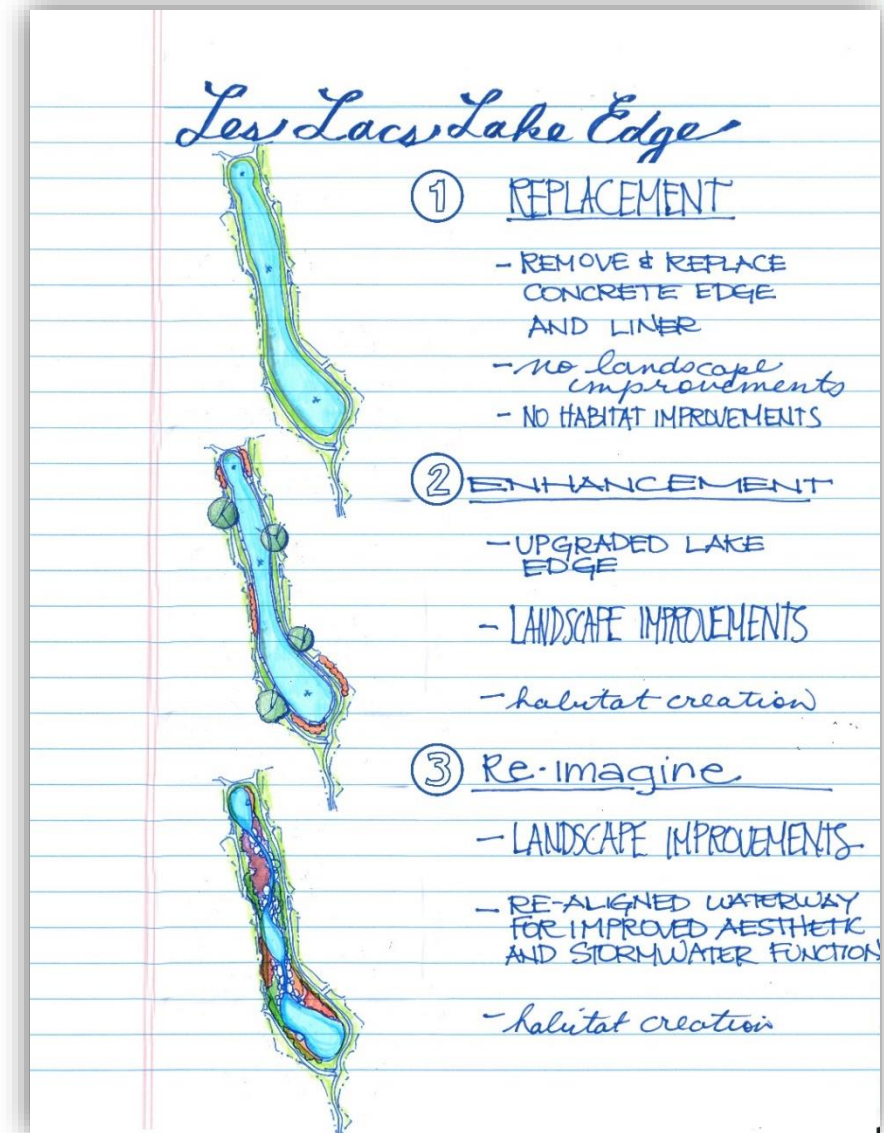 Les Lacs Lake Edge
1 REPLACEMENT
- REMOVE & REPLACE
CONCRETE EDGE
AND LINER
- no landscape
improvements
- NO HABITAT IMPROVEMENTS
2 ENHANCEMENT
- UPGRADED LAKE
EDGE
- LANDSCAPE IMPROVEMENTS
- habitat creation
3 Re-Imagine
- LANDSCAPE IMPROVEMENTS
- RE-ALIGNED WATERWAY
FOR IMPROVED AESTHETIC
AND STORMWATER FUNCTION
- habitat creation